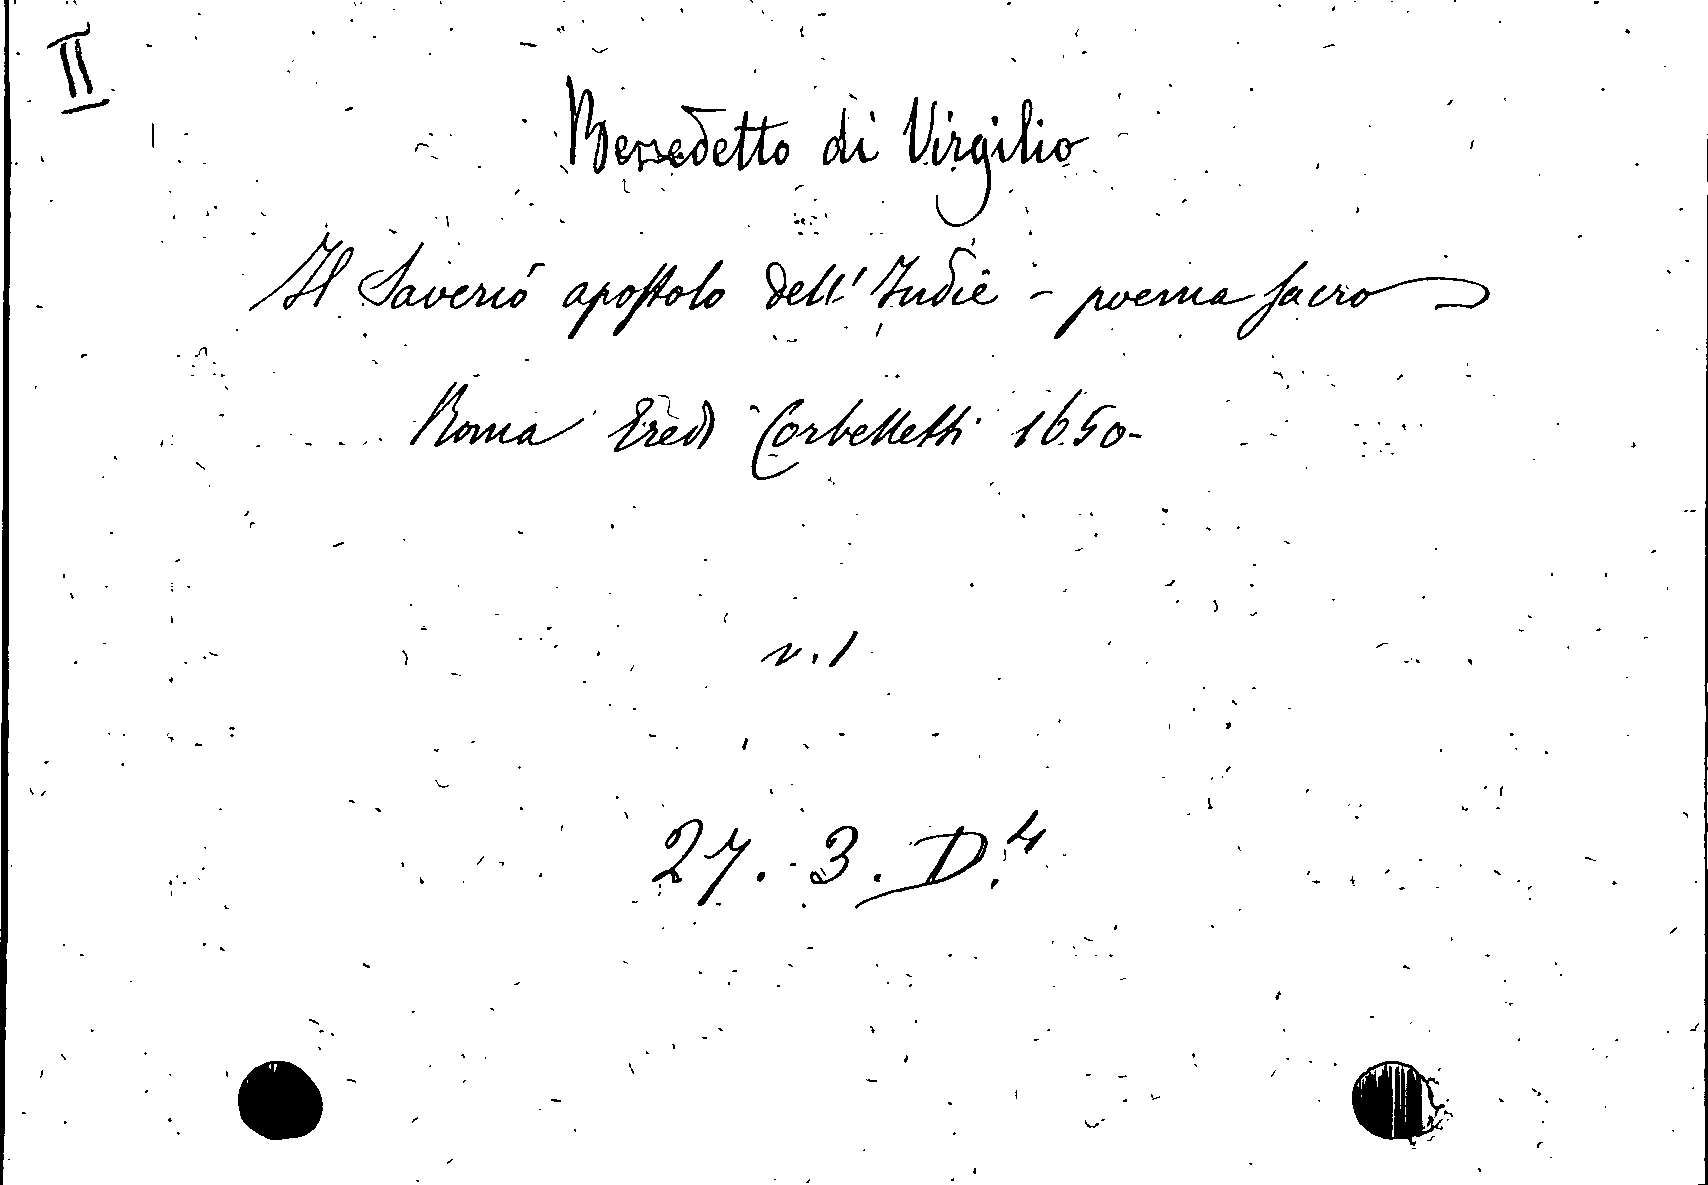 II
Benedetto di Virgilio
Il Saverio apostolo dell'Indie - poema sacro
Roma Eredi Corbelletti 1650-
v. 1
27. 3. D.4